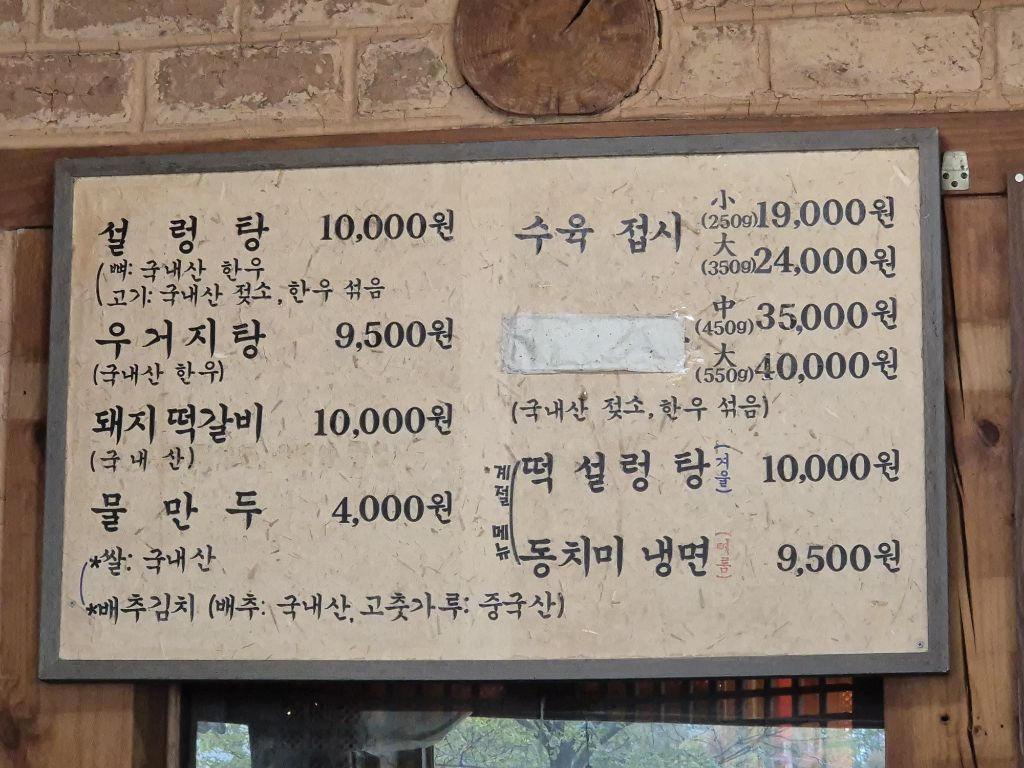 설렁탕 10,000원
(뼈: 국내산 한우
고기: 국내산 젖소, 한우 섞음
우거지탕 9,500원
(국내산 한우)
돼지떡갈비 10,000원
(국내산)
물만두 4,000원
*쌀: 국내산
*배추김치 (배추: 국내산, 고춧가루: 중국산)
수육 접시 小 (250g) 19,000원
大 (350g) 24,000원
中 (450g) 35,000원
大 (550g) 40,000원
(국내산 젖소, 한우 섞음)
계절 메뉴
떡설렁탕 (겨울) 10,000원
동치미 냉면 (여름) 9,500원